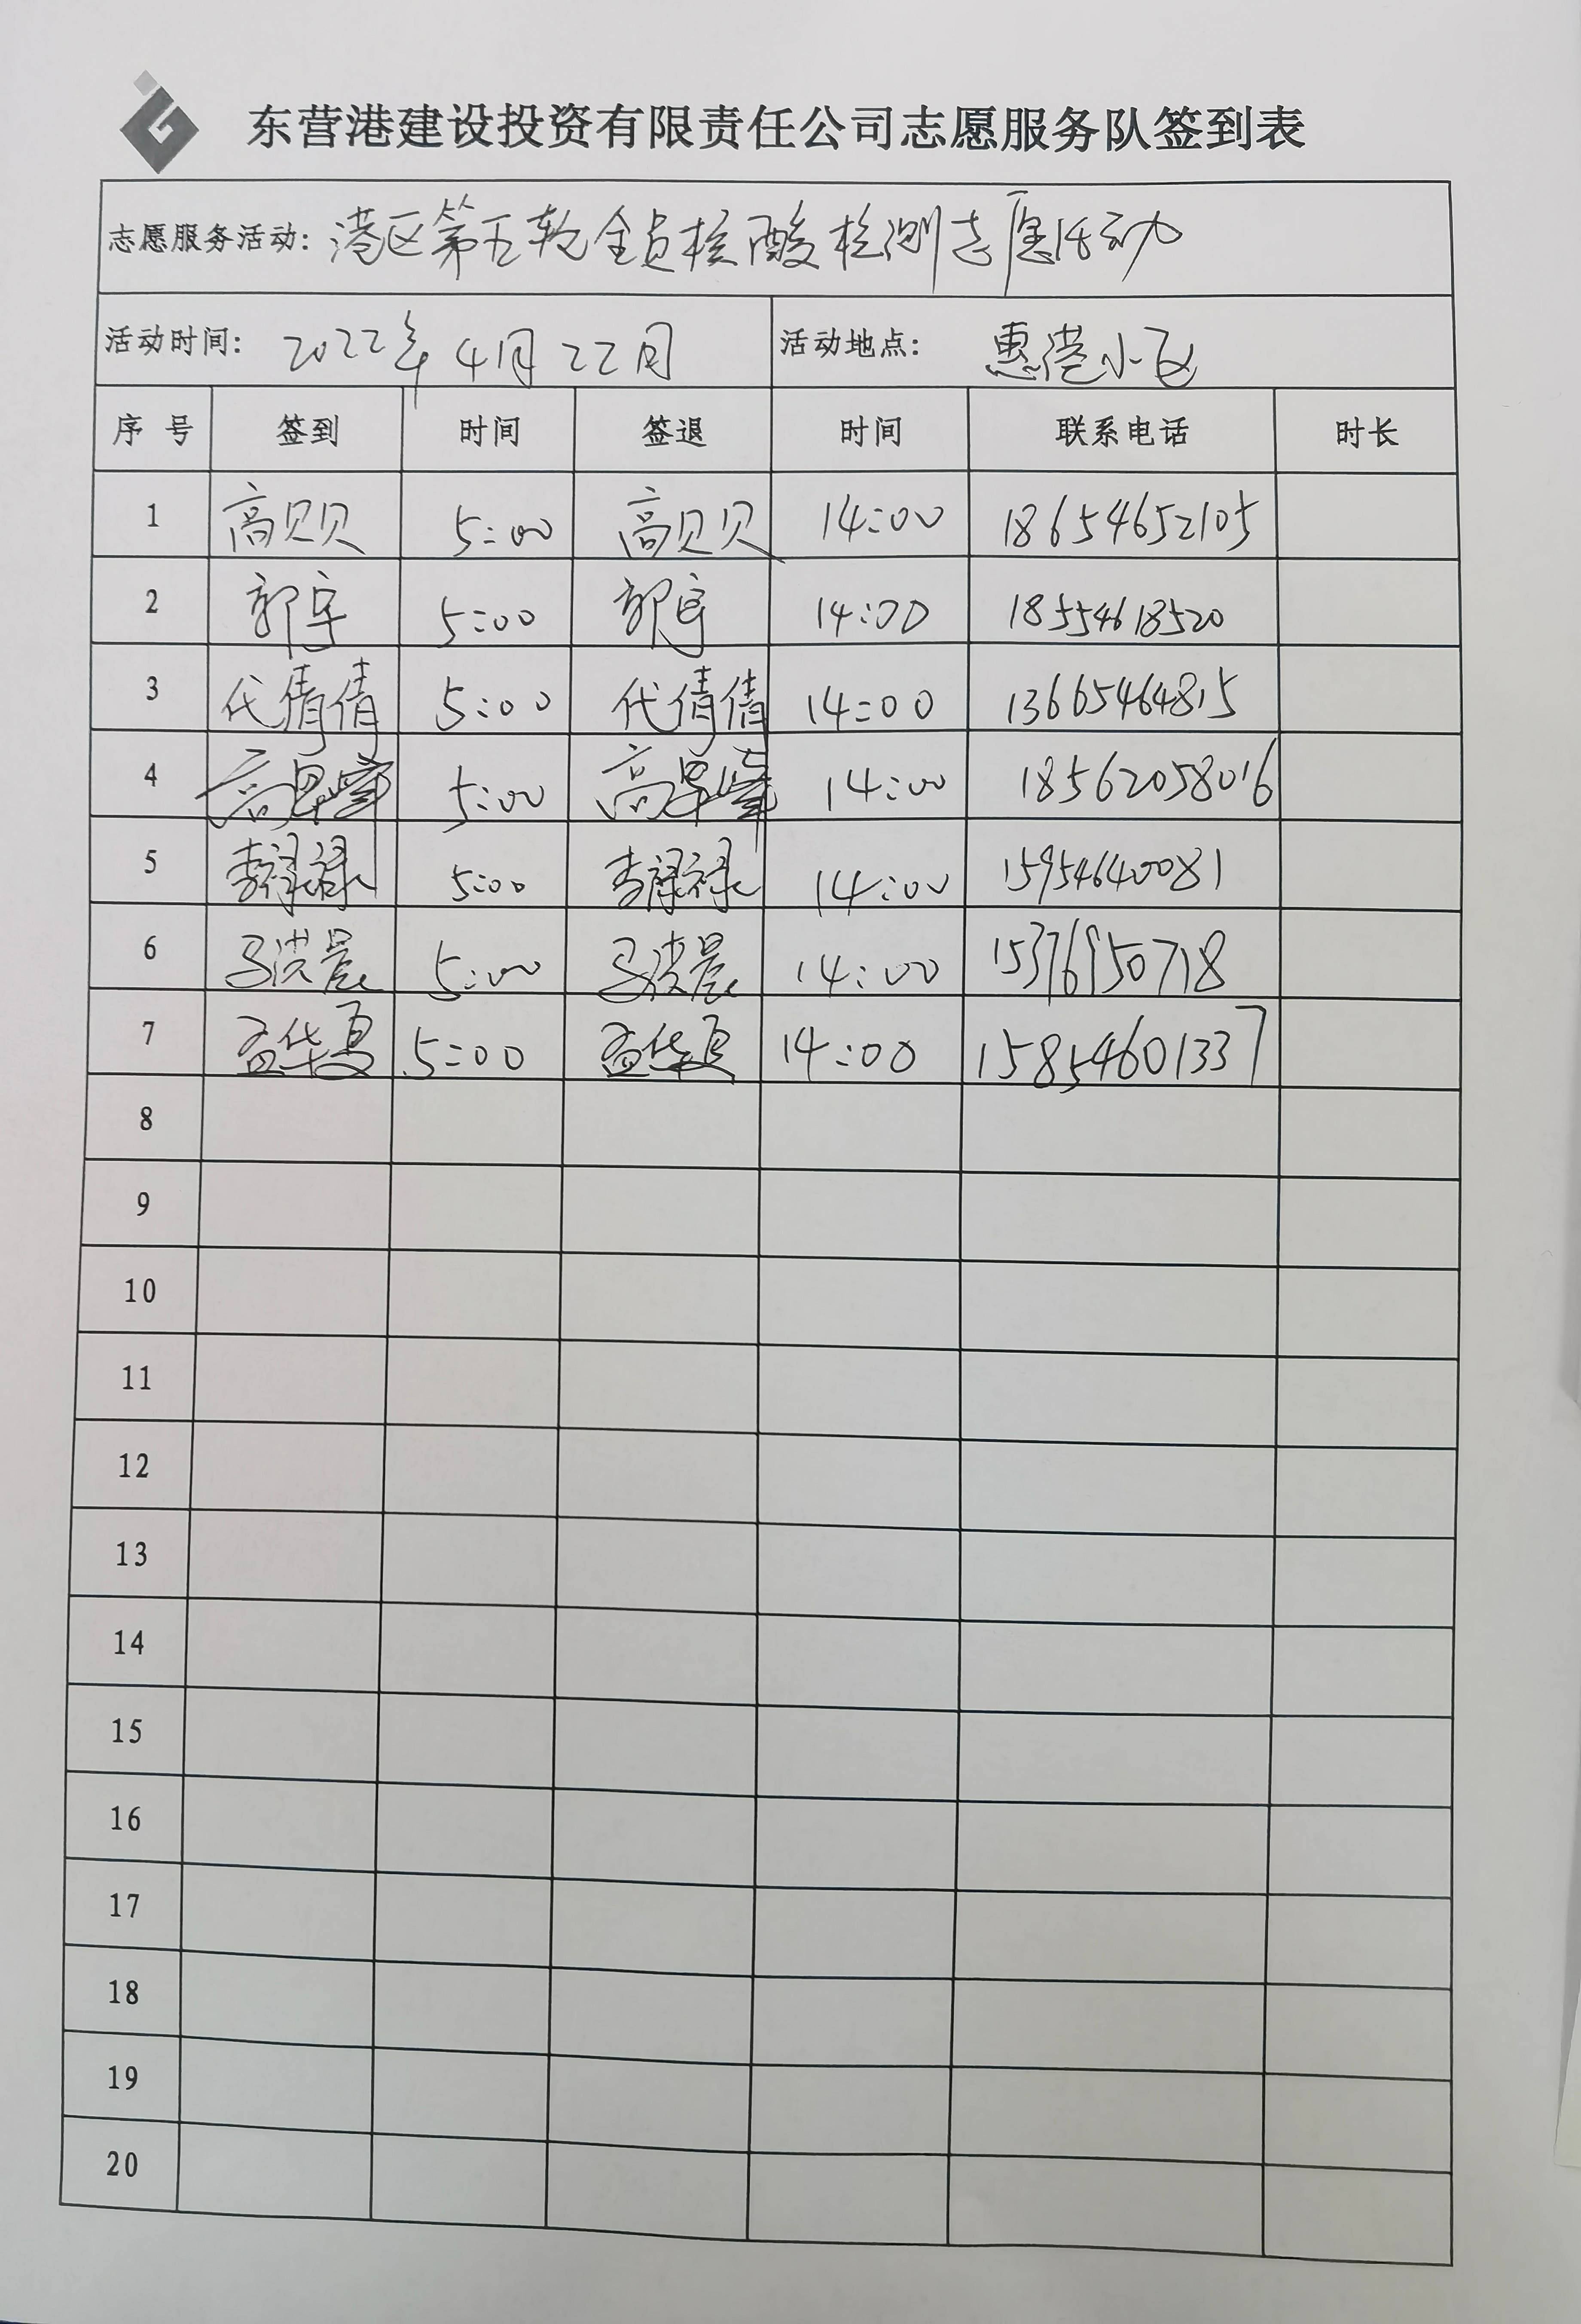 东营港建设投资有限责任公司志愿服务队签到表
志愿服务活动：港区第五轮全员核酸检测志愿活动
活动时间： 2022年4月22日 活动地点： 惠港小区
序号 签到 时间 签退 时间 联系电话 时长
1 高贝贝 5:00 高贝贝 14:00 18654652105
2 郭宇 5:00 郭宇 14:00 18554618520
3 代倩倩 5:00 代倩倩 14:00 13665464815
4 高早峰 5:00 高早峰 14:00 18562058016
5 李禄禄 5:00 李禄禄 14:00 15954640081
6 马洪晨 5:00 马洪晨 14:00 15376950718
7 5:00 14:00 15854601337
8
9
10
11
12
13
14
15
16
17
18
19
20